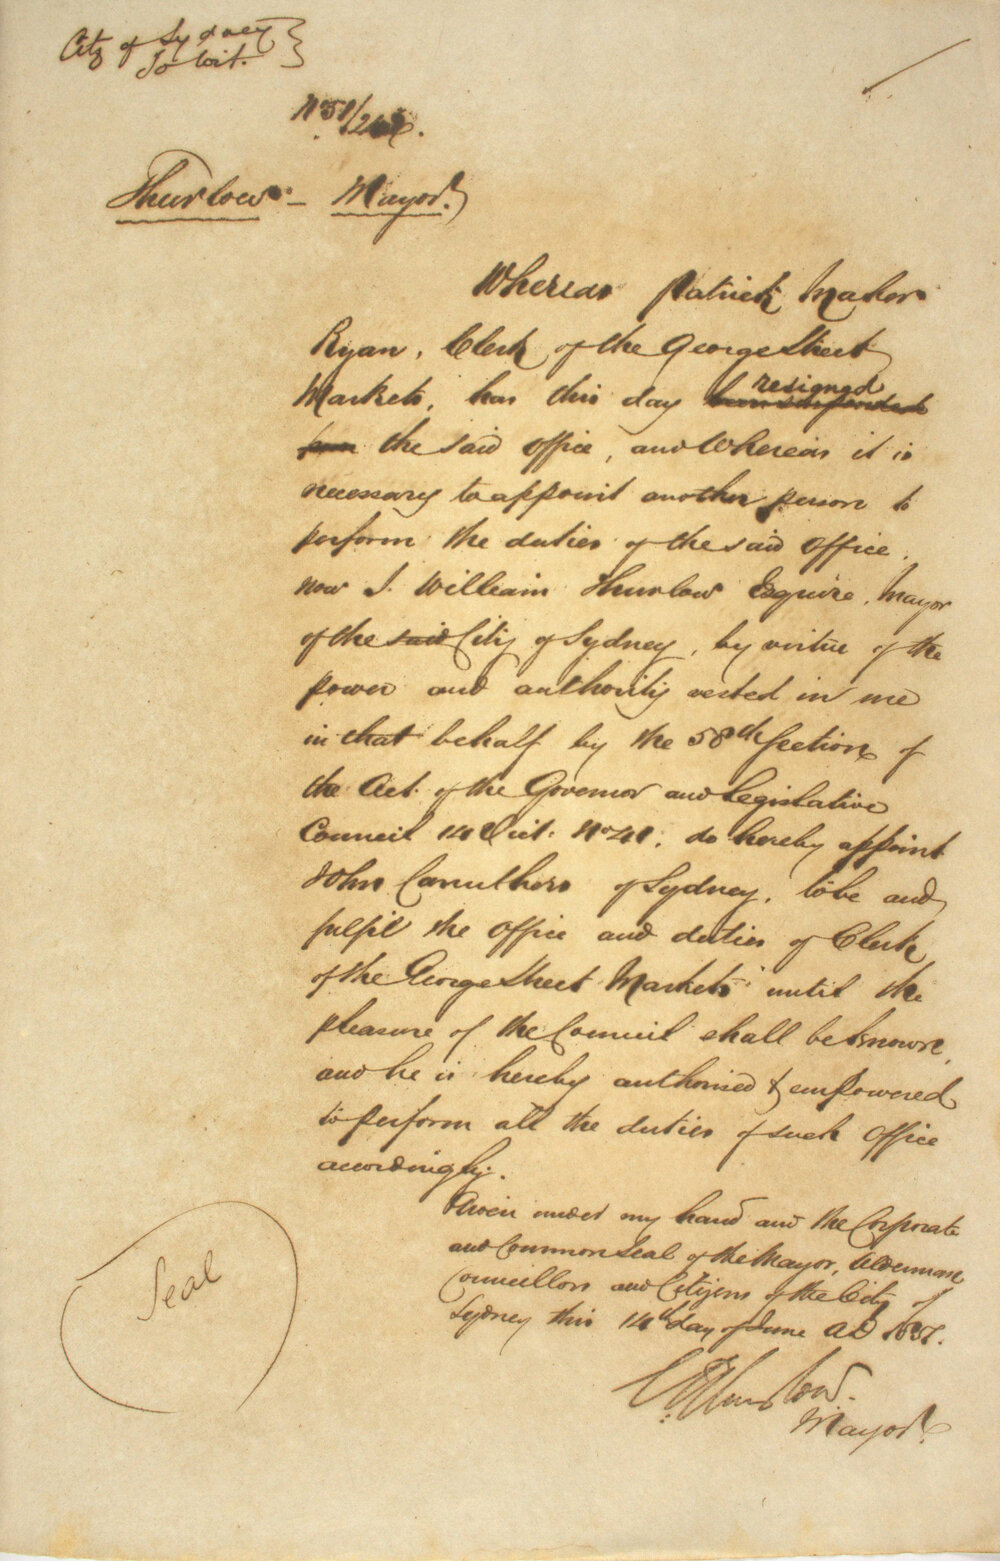 City of Sydney }
To wit.
No 51/
Thurlow - Mayor.
Whereas Patrick Maher
Ryan, Clerk of the George Street
Markets, has this day been suspended resigned
from the said office, and Whereas it is
necessary to appoint another person to
perform the duties of the said office.
now I. William Thurlow Esquire, Mayor
of the said City of Sydney, by virtue of the
power and authority vested in me
in that behalf by the 58th Section of
the Act of the Governor and Legislative
Council 14 Vict. No 41. do hereby appoint
John Carruthers of Sydney, to be and
fulfil the Office and duties of Clerk
of the George Street Markets until the
pleasure of the Council shall be known,
and he is hereby authorised & empowered
to perform all the duties of such Office
accordingly.
Given under my hand and the Corporate
and Common Seal of the Mayor, Aldermen,
Councillors and Citizens of the City of
Sydney this 14th day of June AD
Seal
Thurlow.
Mayor.